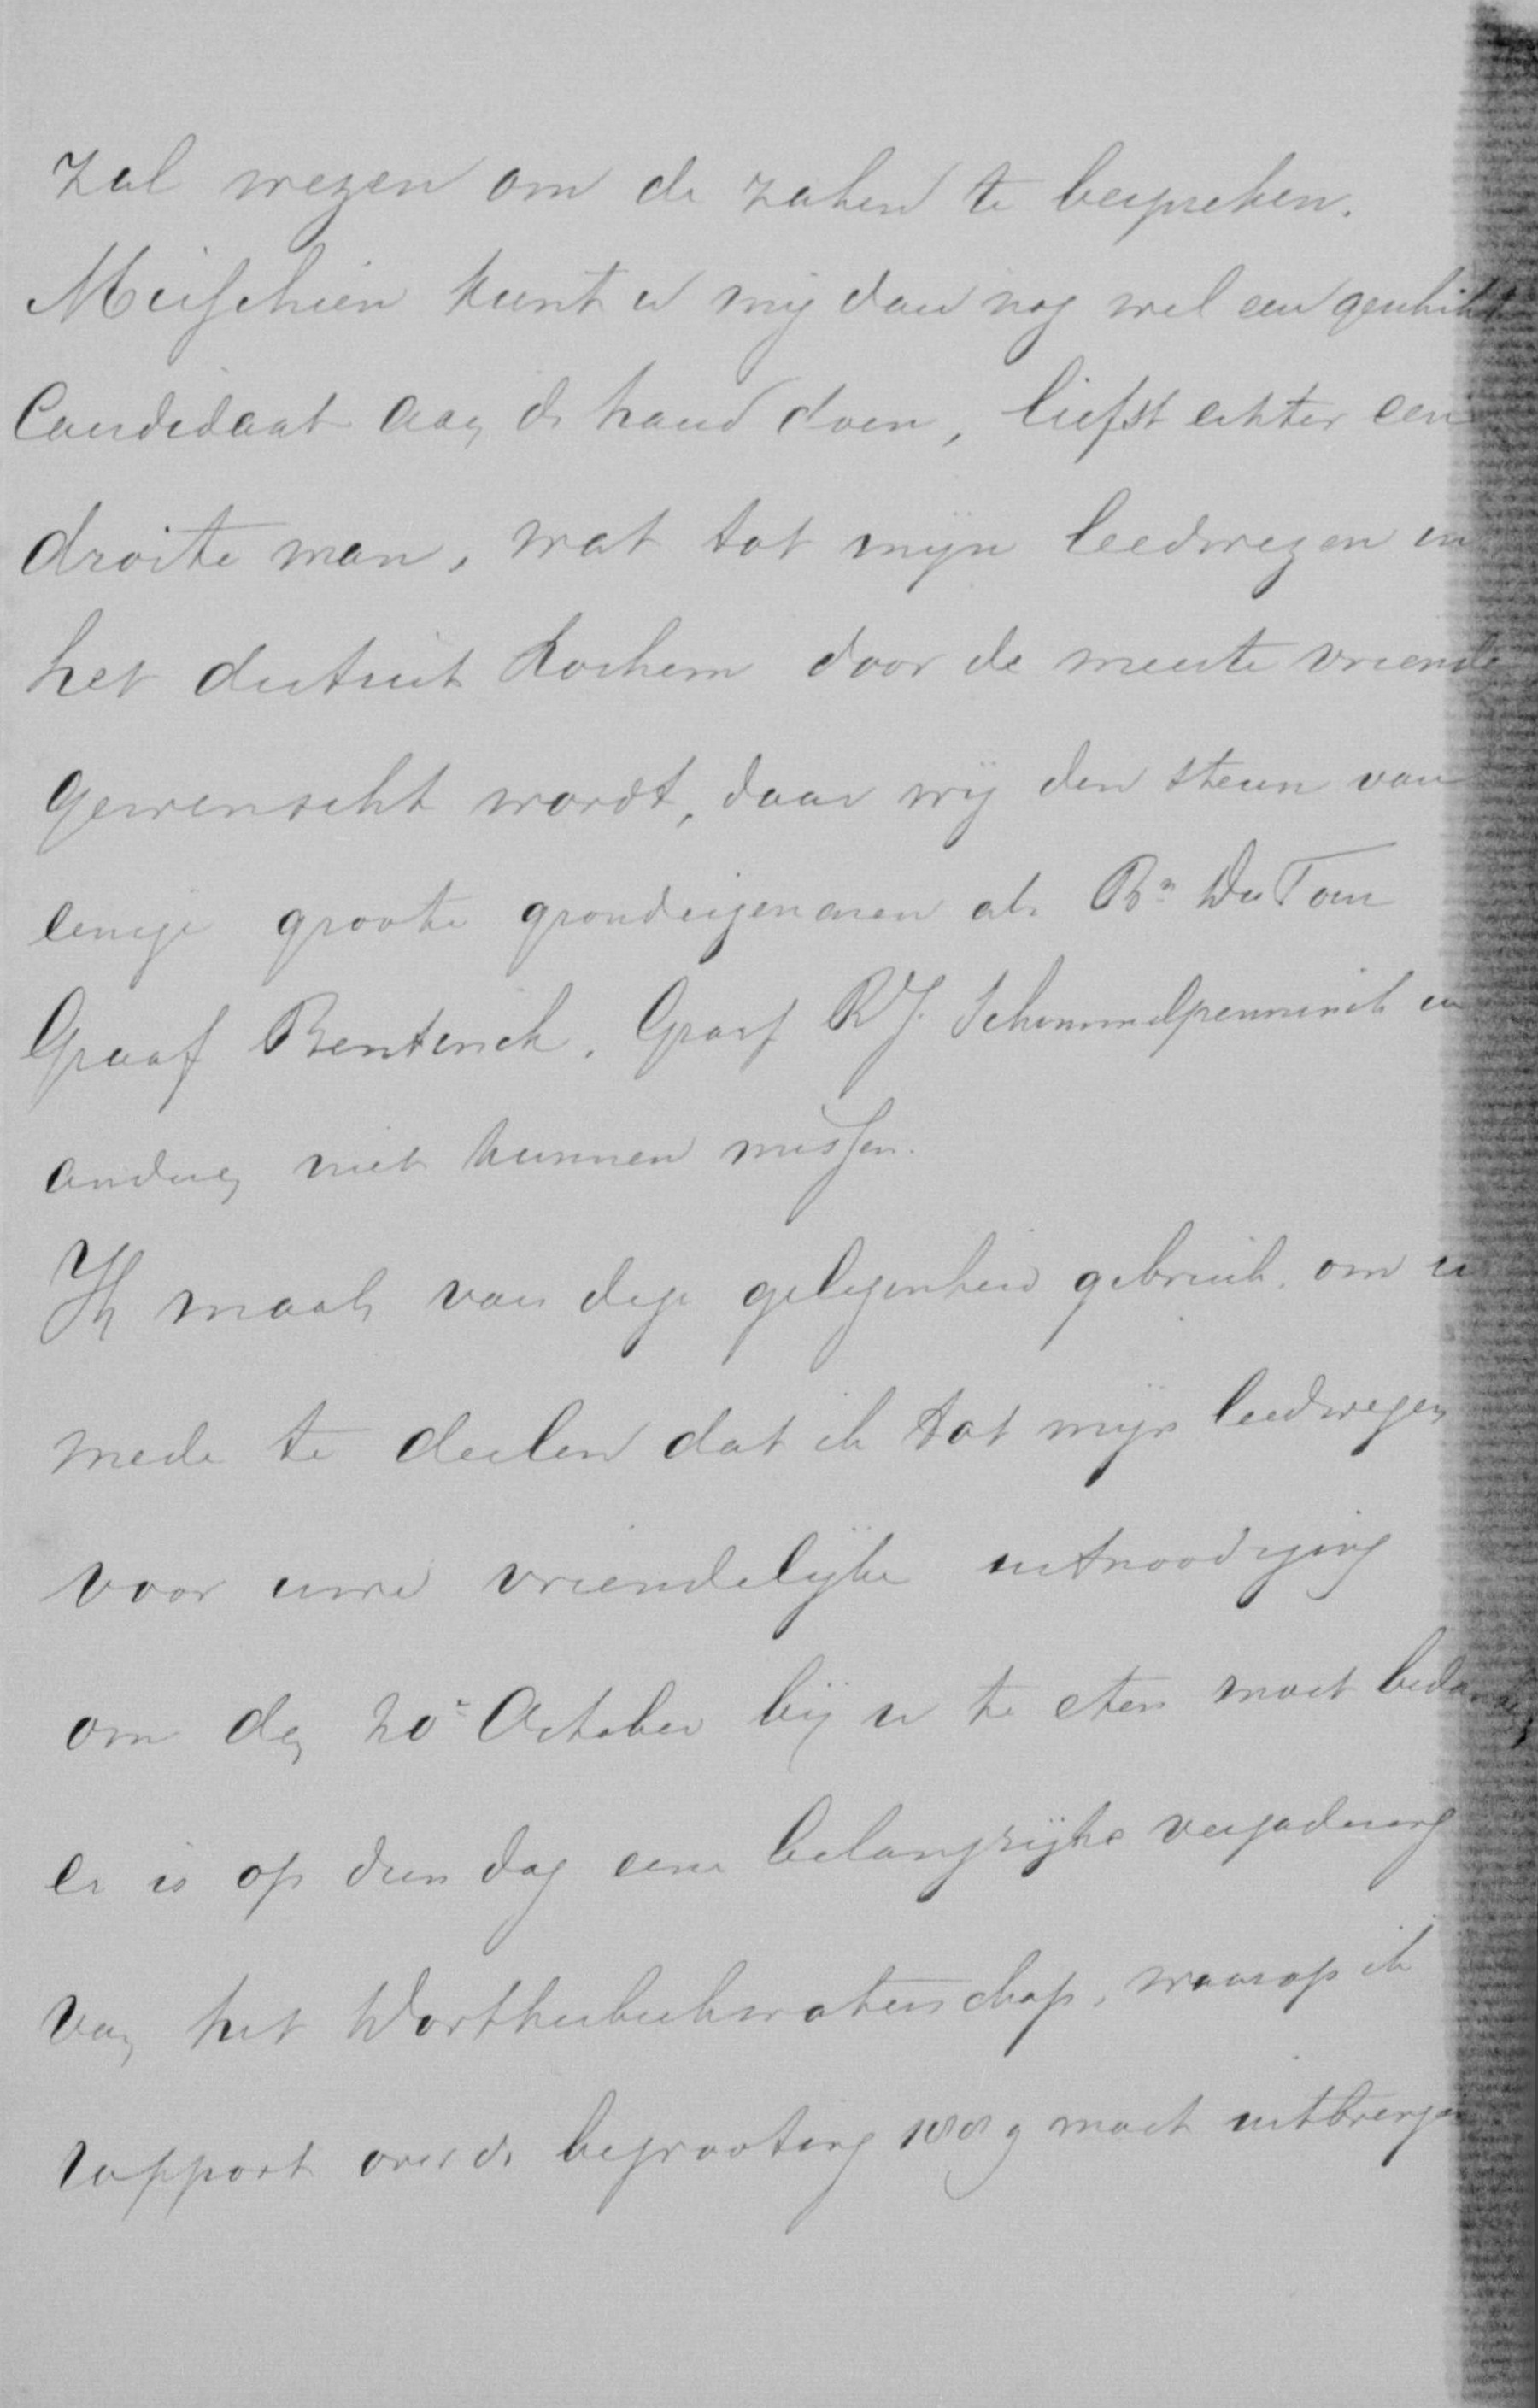 zal wezen om de zaken te bespreken.
Misschien kunt u mij dan nog wel een geschikt
Candidaat aan de hand doen, liefst echter een
droite man, wat tot mijn leedwezen in
het district Lochem door de meeste vrienden
gewenscht wordt, daar wij den steun van
eenige groote grondeigenaren als Bn Du Tour
Graaf Bentinck, Graaf R J. Schimmelpenninck en
anderen niet kunnen missen.
Ik maak van deze gelegenheid gebruik om u
mede te deelen dat ik tot mijn leedwezen
voor uwe vriendelijke uitnoodiging
om den 20e October bij u te eten moet bedanken,
er is op dien dag eene belangrijke vergadering
van het waterschap, waarop ik
rapport over de begrooting 1889 moet uitbrengen